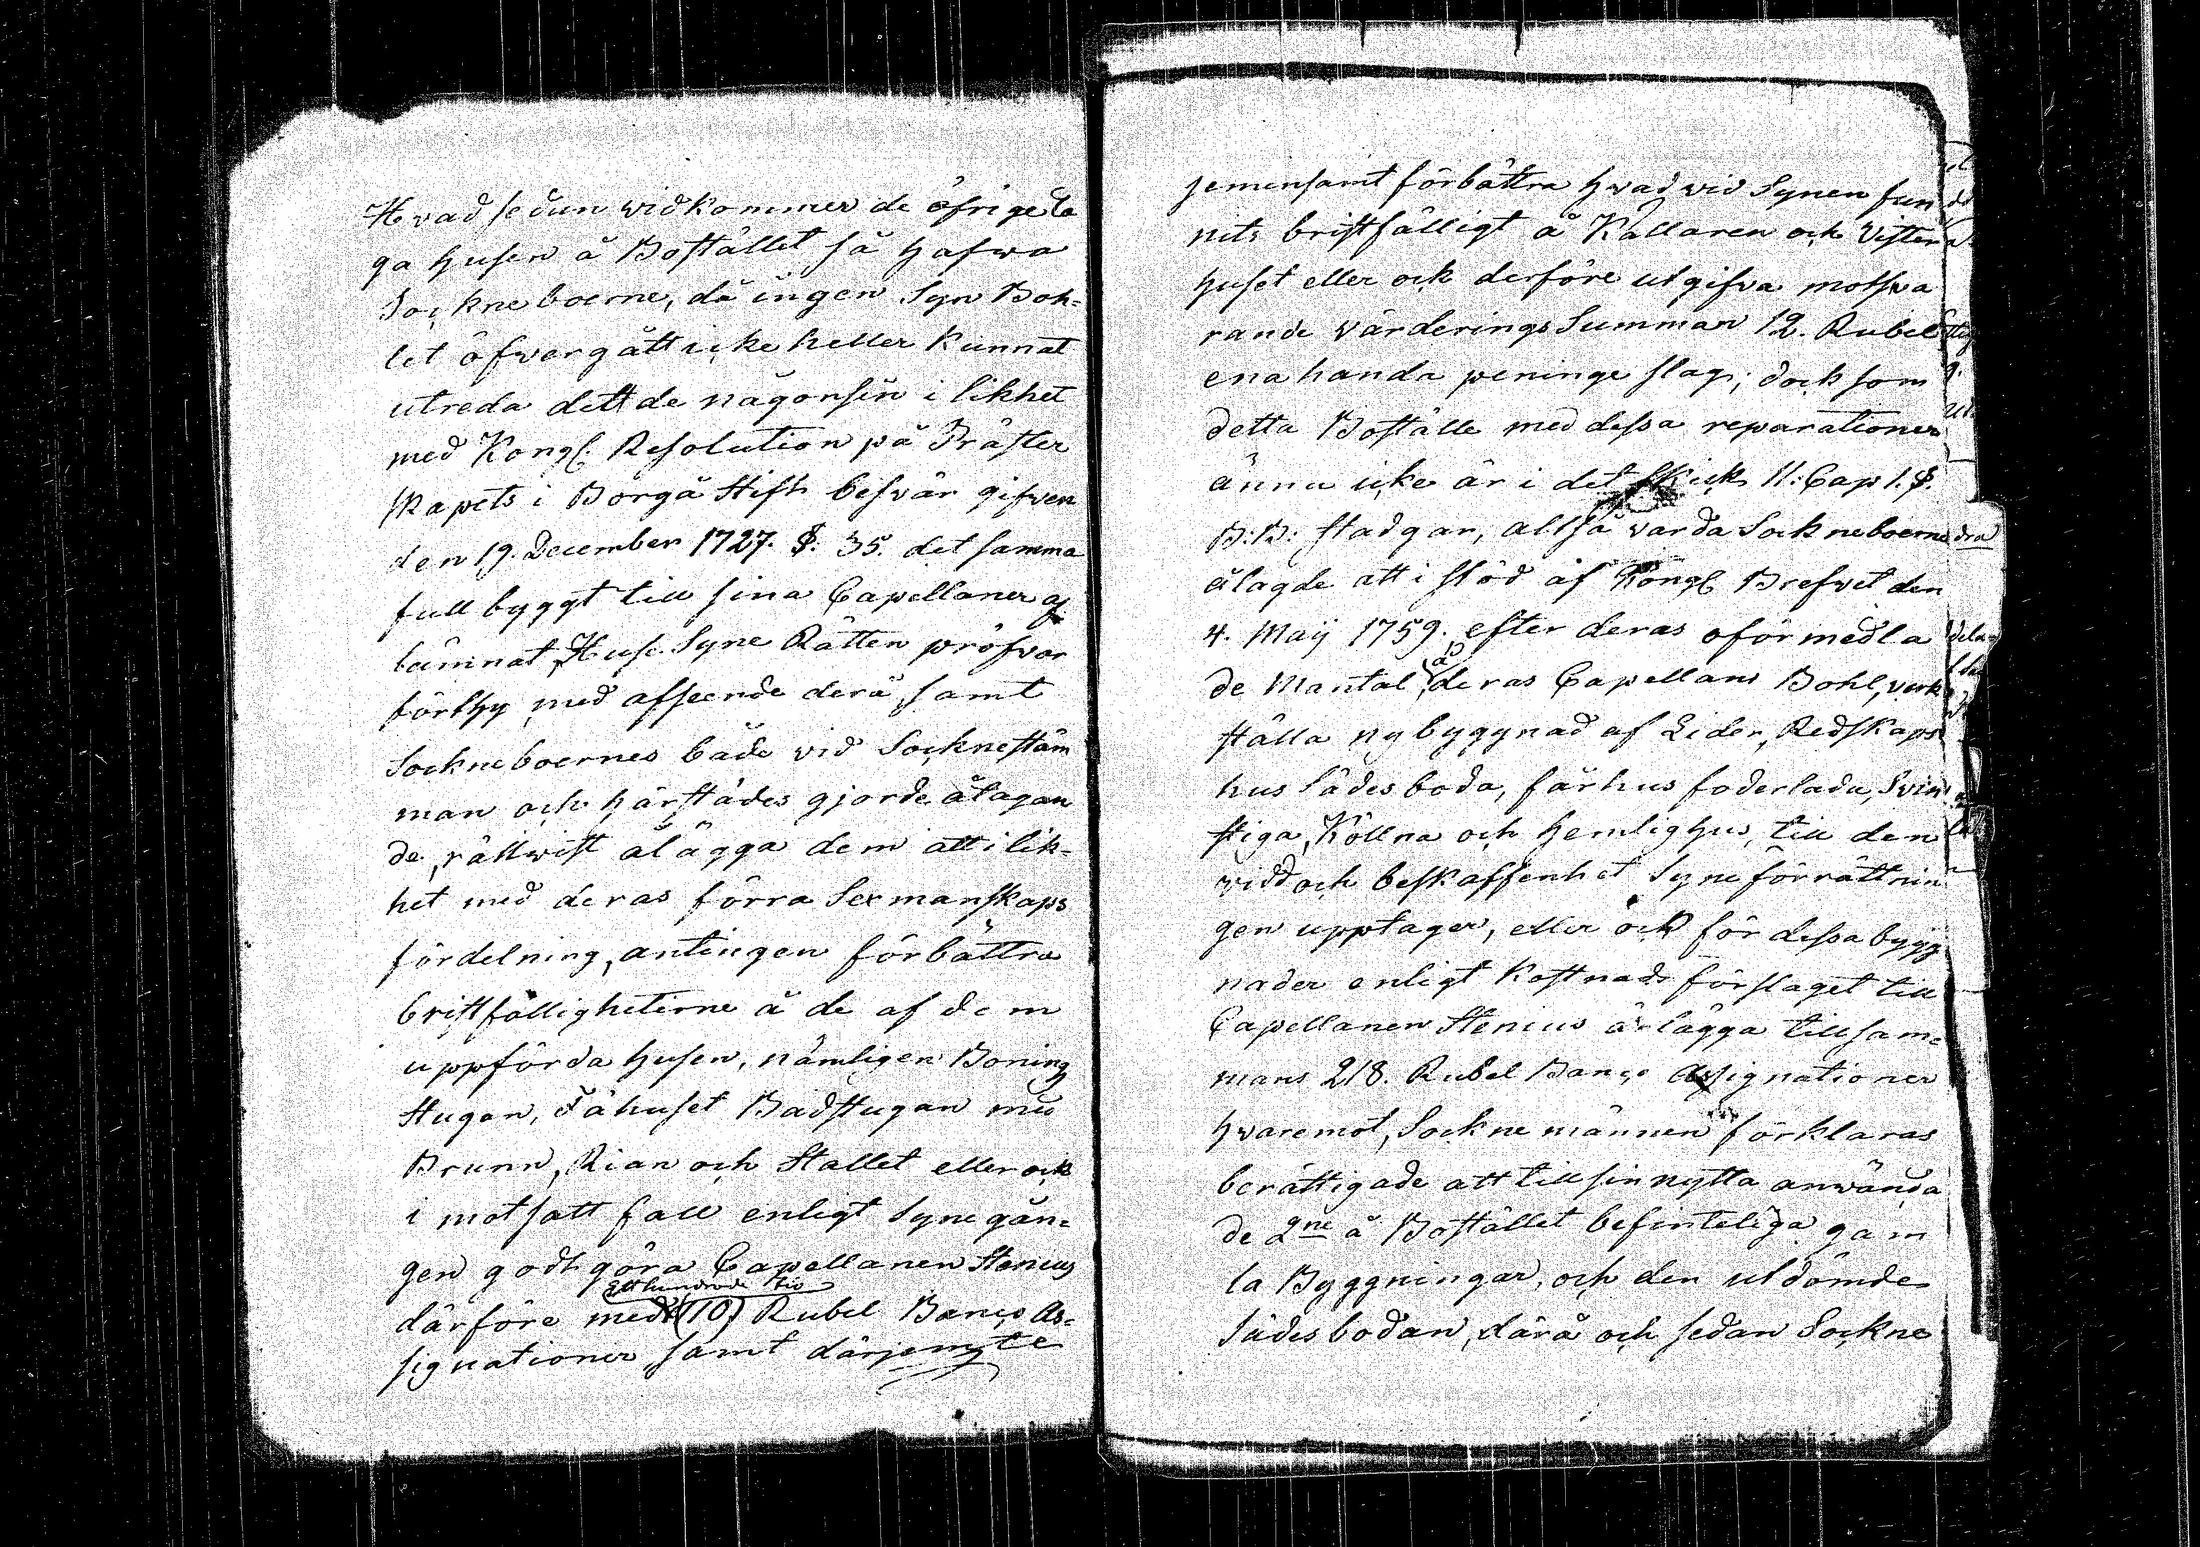 Hvad sedan widkommer de öfrige la
ga husen å Bostället så hafwa
Sockneboerne, då ingen Syn Boh=
let öfvergått icke heller kunnat
utreda dett de någonsin i likhet
med Kongl. Resolution på Präster
skapets i Borgå Stift besvär gifven
den 19. December 1727. §. 35. det samma
full byggt till sina Capellaner af
lämnat, Huse Syne Rätten pröfvar
förthy med afseende derå, samt
Sockneboernes både vid Socknestäm
man och härstädes gjorde åtagan
de, rättwist ålägga dem att i lik=
het med deras förra Sexmanskaps
fördelning, antingen förbättra
bristfälligheterne å de af dem
uppförda husen, nämligen Boning
stugan, Fähuset Badstugan med
Brunn, Rian och Stallet eller ock
i motsatt fall enligt Synegån=
gen godtgöra Capellanen Stenius
Ett hundrade tio
därföre med (110) Rubel Banco As=
signationer samt därjemgte
jemensamt förbättra hvad vid Synen fun
nits bristfälligt å Källaren och Visten
huset eller ock derföre utgifva motsva
rande värderings Summan 12. Rubel
enahanda peninge slag; dock som
detta Boställe med dessa reparationer
ännu icke är i det skick 11: Cap 1. §.
B:B: stadgar, altså varda Sockneboerne
ålagde att i stöd af Kongl Brefvet den
4. Maij 1759. efter deras oförmedla
de Mantal, å deras Capellans Bohl, verk
ställa nybyggnad af Lider, Redskaps
hus Sädesboda, fårhus foderlada, Svin
stiga, Köllna och hemlighus, till den
vidd och beskaffenhet Syneförrättnin
gen upptager, eller ock för dessa bygg
nader enligt Kostnads förslaget till
Capellanen Stenius ärlägga tillsam=
mans 218. Rubel Banco Assignationer
hvaremot, Sockne männen förklaras
berättigade att till sin nytta använda
de 2ne å Bostället befinteliga gam
la Byggningar, och den utdömde
Sädesbodan, därå och sedan Sockne